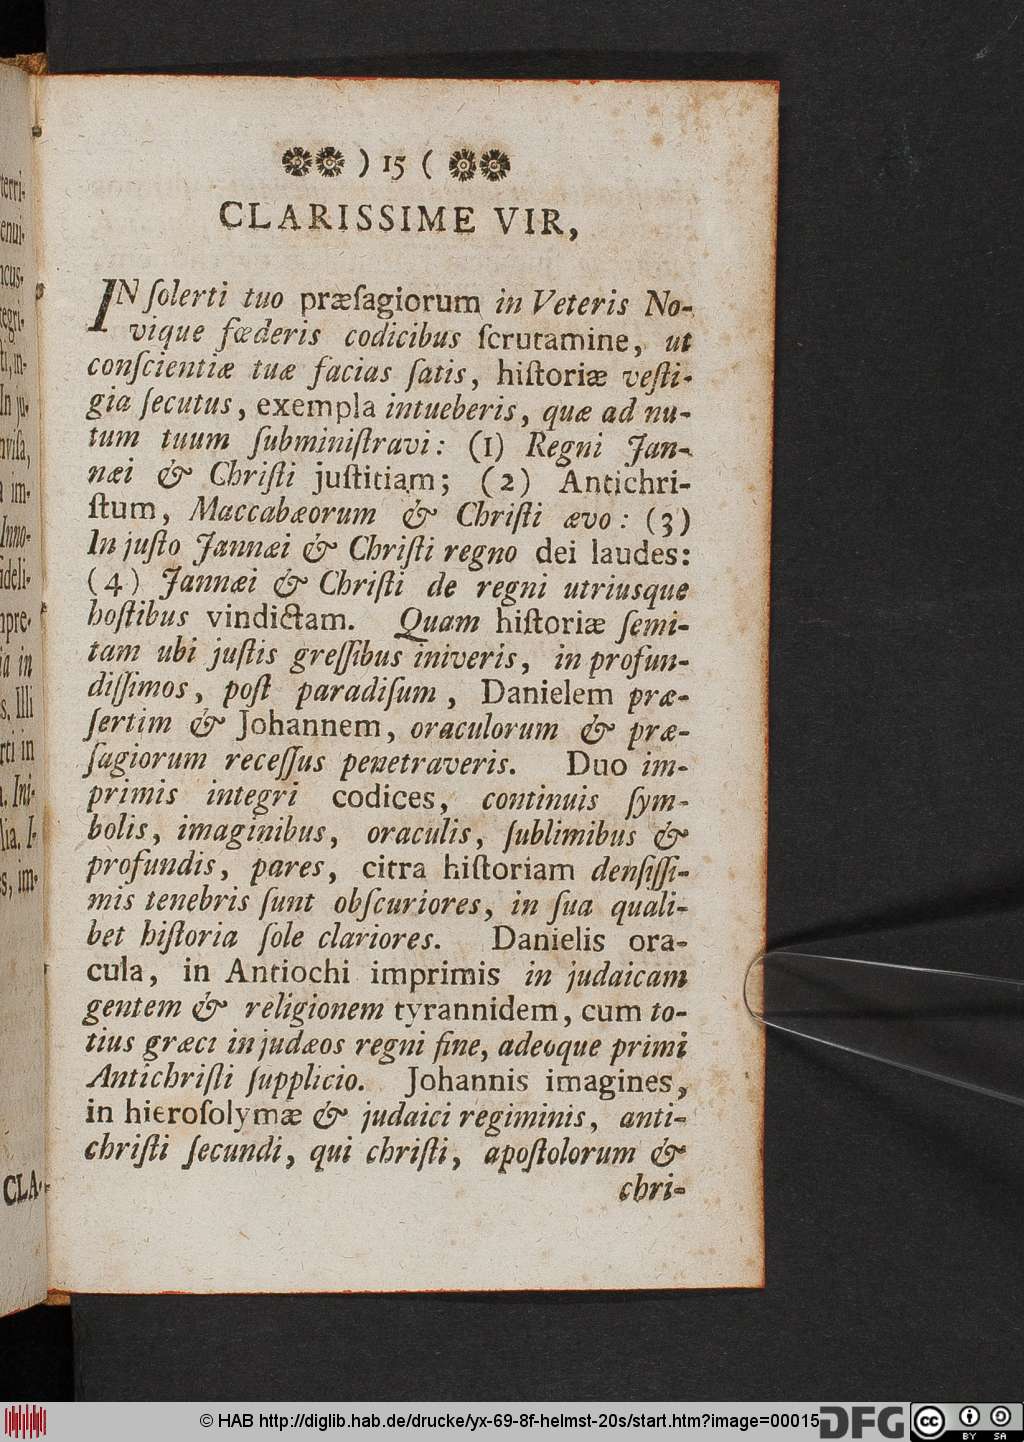 ) 15 (
CLARISSIME VIR,
IN ſolerti tuo præſagiorum in Veteris No-
vique fœderis codicibus ſcrutamine, ut
conſcientiæ tuæ facias ſatis, hiſtoriæ veſti-
gia ſecutus, exempla intueberis, quæ ad nu-
tum tuum ſubminiſtravi: (1) Regni Jan-
næi & Chriſti juſtitiam; (2) Antichri-
ſtum, Maccabæorum & Chriſti ævo: (3)
In juſto Jannæi & Chriſti regno dei laudes:
(4) Jannæi & Chriſti de regni utriusque
hoſtibus vindictam. Quam hiſtoriæ ſemi-
tam ubi juſtis greſſibus iniveris, in profun-
diſſimos, poſt paradiſum, Danielem præ-
ſertim & Johannem, oraculorum & præ-
ſagiorum receſſus penetraveris. Duo im-
primis integri codices, continuis ſym-
bolis, imaginibus, oraculis, ſublimibus &
profundis, pares, citra hiſtoriam denſiſſi-
mis tenebris ſunt obſcuriores, in ſua quali-
bet hiſtoria ſole clariores. Danielis ora-
cula, in Antiochi imprimis in judaicam
gentem & religionem tyrannidem, cum to-
tius græci in judæos regni fine, adeoque primi
Antichriſti ſupplicio. Johannis imagines,
in hieroſolymæ & judaici regiminis, anti-
chriſti ſecundi, qui chriſti, apoſtolorum &
chri-
terri-
enui-
ncus-
regri-
ti, in-
In ju-
nviſa,
a im-
Inno-
ideli-
mpre-
ia in
s, Illi
rti in
a. Ini-
Aia. I-
s, im-
CLA-
© HAB http://diglib.hab.de/drucke/yx-69-8f-helmst-20s/start.htm?image=00015
DFG
cc
BY SA